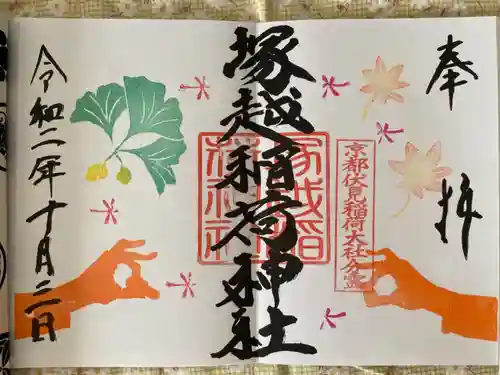 奉拝
塚越稲荷神社
塚越稲荷神社
京都伏見稲荷大社分霊
令和二年十月二日